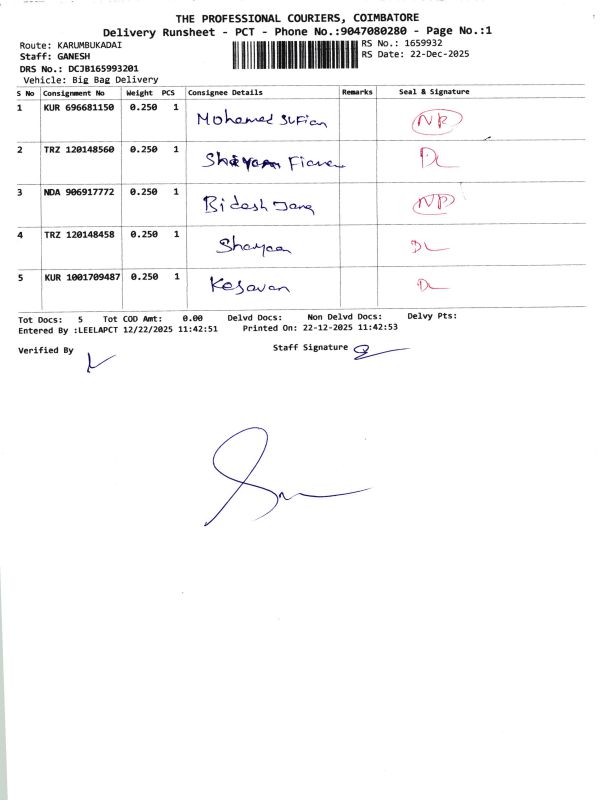 THE PROFESSIONAL COURIERS, COIMBATORE
Delivery Runsheet - PCT - Phone No.:9047080280 - Page No.:1
Route: KARUMBUKADAI RS No.: 1659932
Staff: GANESH RS Date: 22-Dec-2025
DRS No.: DCJB165993201
Vehicle: Big Bag Delivery
S No Consignment No Weight PCS Consignee Details Remarks Seal & Signature
1 KUR 696681150 0.250 1 Mohamed Sufian NR
2 TRZ 120148560 0.250 1 Shayaan DL
3 NDA 906917772 0.250 1 Bidesh Jana NP
4 TRZ 120148458 0.250 1 Shayaan DL
5 KUR 1001709487 0.250 1 Kesavan DL
Tot Docs: 5 Tot COD Amt: 0.00 Delvd Docs: Non Delvd Docs: Delvy Pts:
Entered By :LEELAPCT 12/22/2025 11:42:51 Printed On: 22-12-2025 11:42:53
Verified By Staff Signature